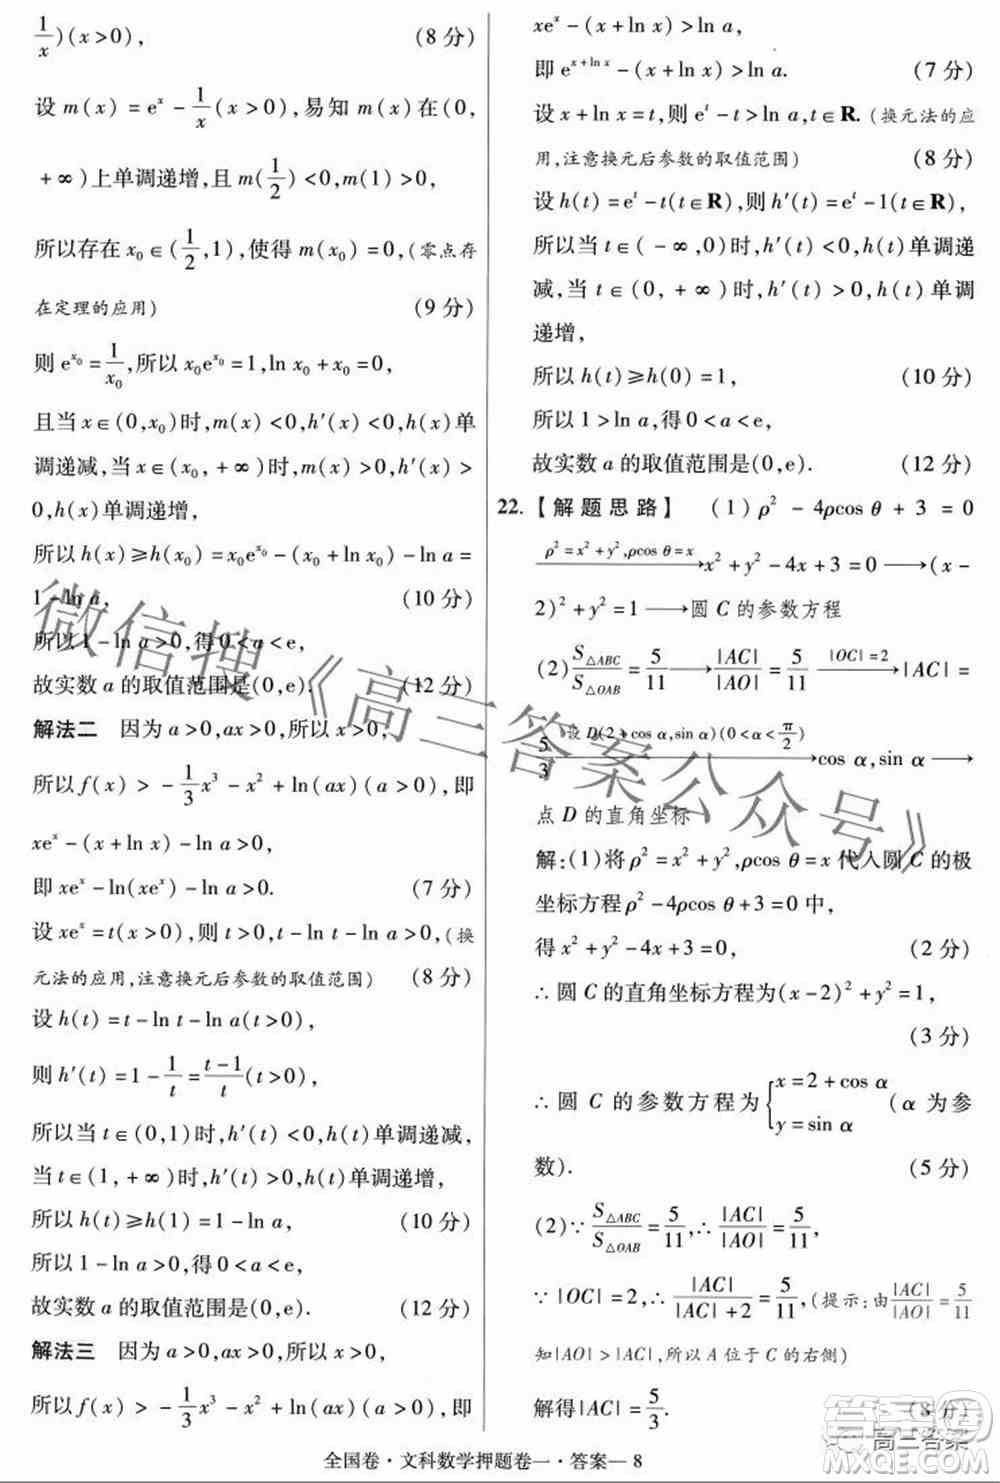 1/x)(x>0), (8分)
设 m(x)=eˣ-1/x(x>0),易知 m(x)在(0,
+∞)上单调递增,且 m(1/2)<0,m(1)>0,
所以存在 x₀∈(1/2,1),使得 m(x₀)=0,(零点存
在定理的应用) (9分)
则 e^{x₀}=1/x₀,所以 x₀e^{x₀}=1,ln x₀+x₀=0,
且当 x∈(0,x₀)时,m(x)<0,h′(x)<0,h(x)单
调递减,当 x∈(x₀,+∞)时,m(x)>0,h′(x)>
0,h(x)单调递增,
所以 h(x)≥h(x₀)=x₀e^{x₀}-(x₀+ln x₀)-ln a=
1-ln a, (10分)
所以 1-ln a>0,得 0<a<e,
故实数 a 的取值范围是(0,e). (12分)
解法二 因为 a>0,ax>0,所以 x>0,
所以 f(x)>-1/3x³-x²+ln(ax)(x>0),即
xeˣ-(x+ln x)-ln a>0,
即 xeˣ-ln(xeˣ)-ln a>0. (7分)
设 xeˣ=t(x>0),则 t>0,t-ln t-ln a>0,(换
元法的应用,注意换元后参数的取值范围) (8分)
设 h(t)=t-ln t-ln a(t>0),
则 h′(t)=1-1/t=(t-1)/t(t>0),
所以当 t∈(0,1)时,h′(t)<0,h(t)单调递减,
当 t∈(1,+∞)时,h′(t)>0,h(t)单调递增,
所以 h(t)≥h(1)=1-ln a, (10分)
所以 1-ln a>0,得 0<a<e,
故实数 a 的取值范围是(0,e). (12分)
解法三 因为 a>0,ax>0,所以 x>0,
所以 f(x)>-1/3x³-x²+ln(ax)(x>0),即
xeˣ-(x+ln x)>ln a,
即 e^{x+ln x}-(x+ln x)>ln a. (7分)
设 x+ln x=t,则 eᵗ-t>ln a,t∈R.(换元法的应
用,注意换元后参数的取值范围) (8分)
设 h(t)=eᵗ-t(t∈R),则 h′(t)=eᵗ-1(t∈R),
所以当 t∈(-∞,0)时,h′(t)<0,h(t)单调递
减,当 t∈(0,+∞)时,h′(t)>0,h(t)单调
递增,
所以 h(t)≥h(0)=1, (10分)
所以 1>ln a,得 0<a<e,
故实数 a 的取值范围是(0,e). (12分)
22.【解题思路】 (1)ρ²-4ρcos θ+3=0
ρ²=x²+y²,ρcos θ=x→x²+y²-4x+3=0→(x-
2)²+y²=1→圆 C 的参数方程
(2)S△ABC/S△OAB=5/11→|AC|/|AO|=5/11 |OC|=2→|AC|=
5/3 设 D(2+cos α,sin α)(0<α<π/2)→cos α,sin α→
点 D 的直角坐标
解:(1)将 ρ²=x²+y²,ρcos θ=x 代入圆 C 的极
坐标方程 ρ²-4ρcos θ+3=0 中,
得 x²+y²-4x+3=0, (2分)
∴圆 C 的直角坐标方程为(x-2)²+y²=1,
(3分)
∴圆 C 的参数方程为{x=2+cos α y=sin α(α 为参
数). (5分)
(2)∵S△ABC/S△OAB=5/11,∴|AC|/|AO|=5/11,
∵|OC|=2,∴|AC|/(|AC|+2)=5/11,(提示:由|AC|/|AO|=5/11
知|AO|>|AC|,所以 A 位于 C 的右侧)
解得|AC|=5/3. (8分)
全国卷·文科数学押题卷一·答案—8
微信搜《高三答案公众号》
高三答案